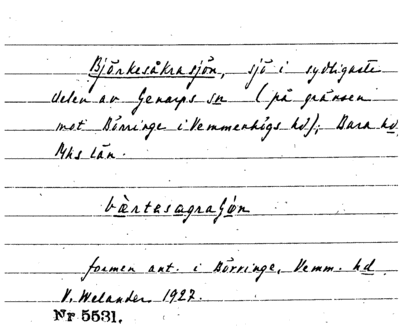 Björkesåkrasjön, sjö i sydligaste
delen av Genarps sn (på gränsen
mot Börringe i Vemmenhögs hd); Bara hd
Mhs län.
formen ant. i Börringe, Vemm. hd
V. Welander 1927.
Nr 5531.